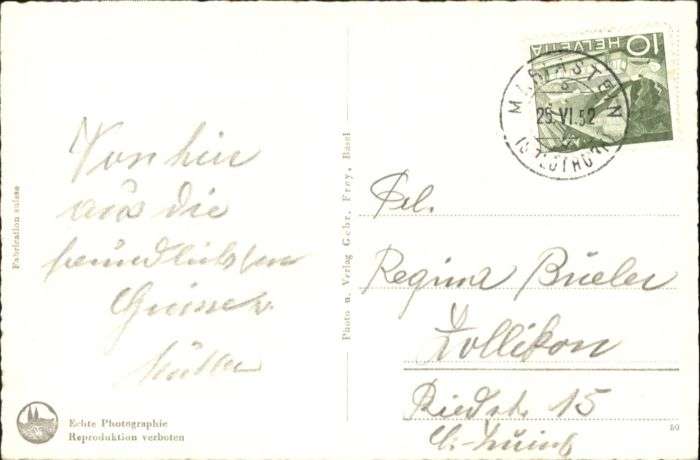 Von hier
aus die
freundlichsten
Grüsse v.
Müller
Echte Photographie
Reproduktion verboten
Fabrication suisse
Photo u. Verlag Gebr. Frey, Basel
HELVETIA 10
MARIASTEIN
25.VI.52
(SOLOTHURN)
Frl.
Regina Büeler
Zollikon
Riedstr. 15
60